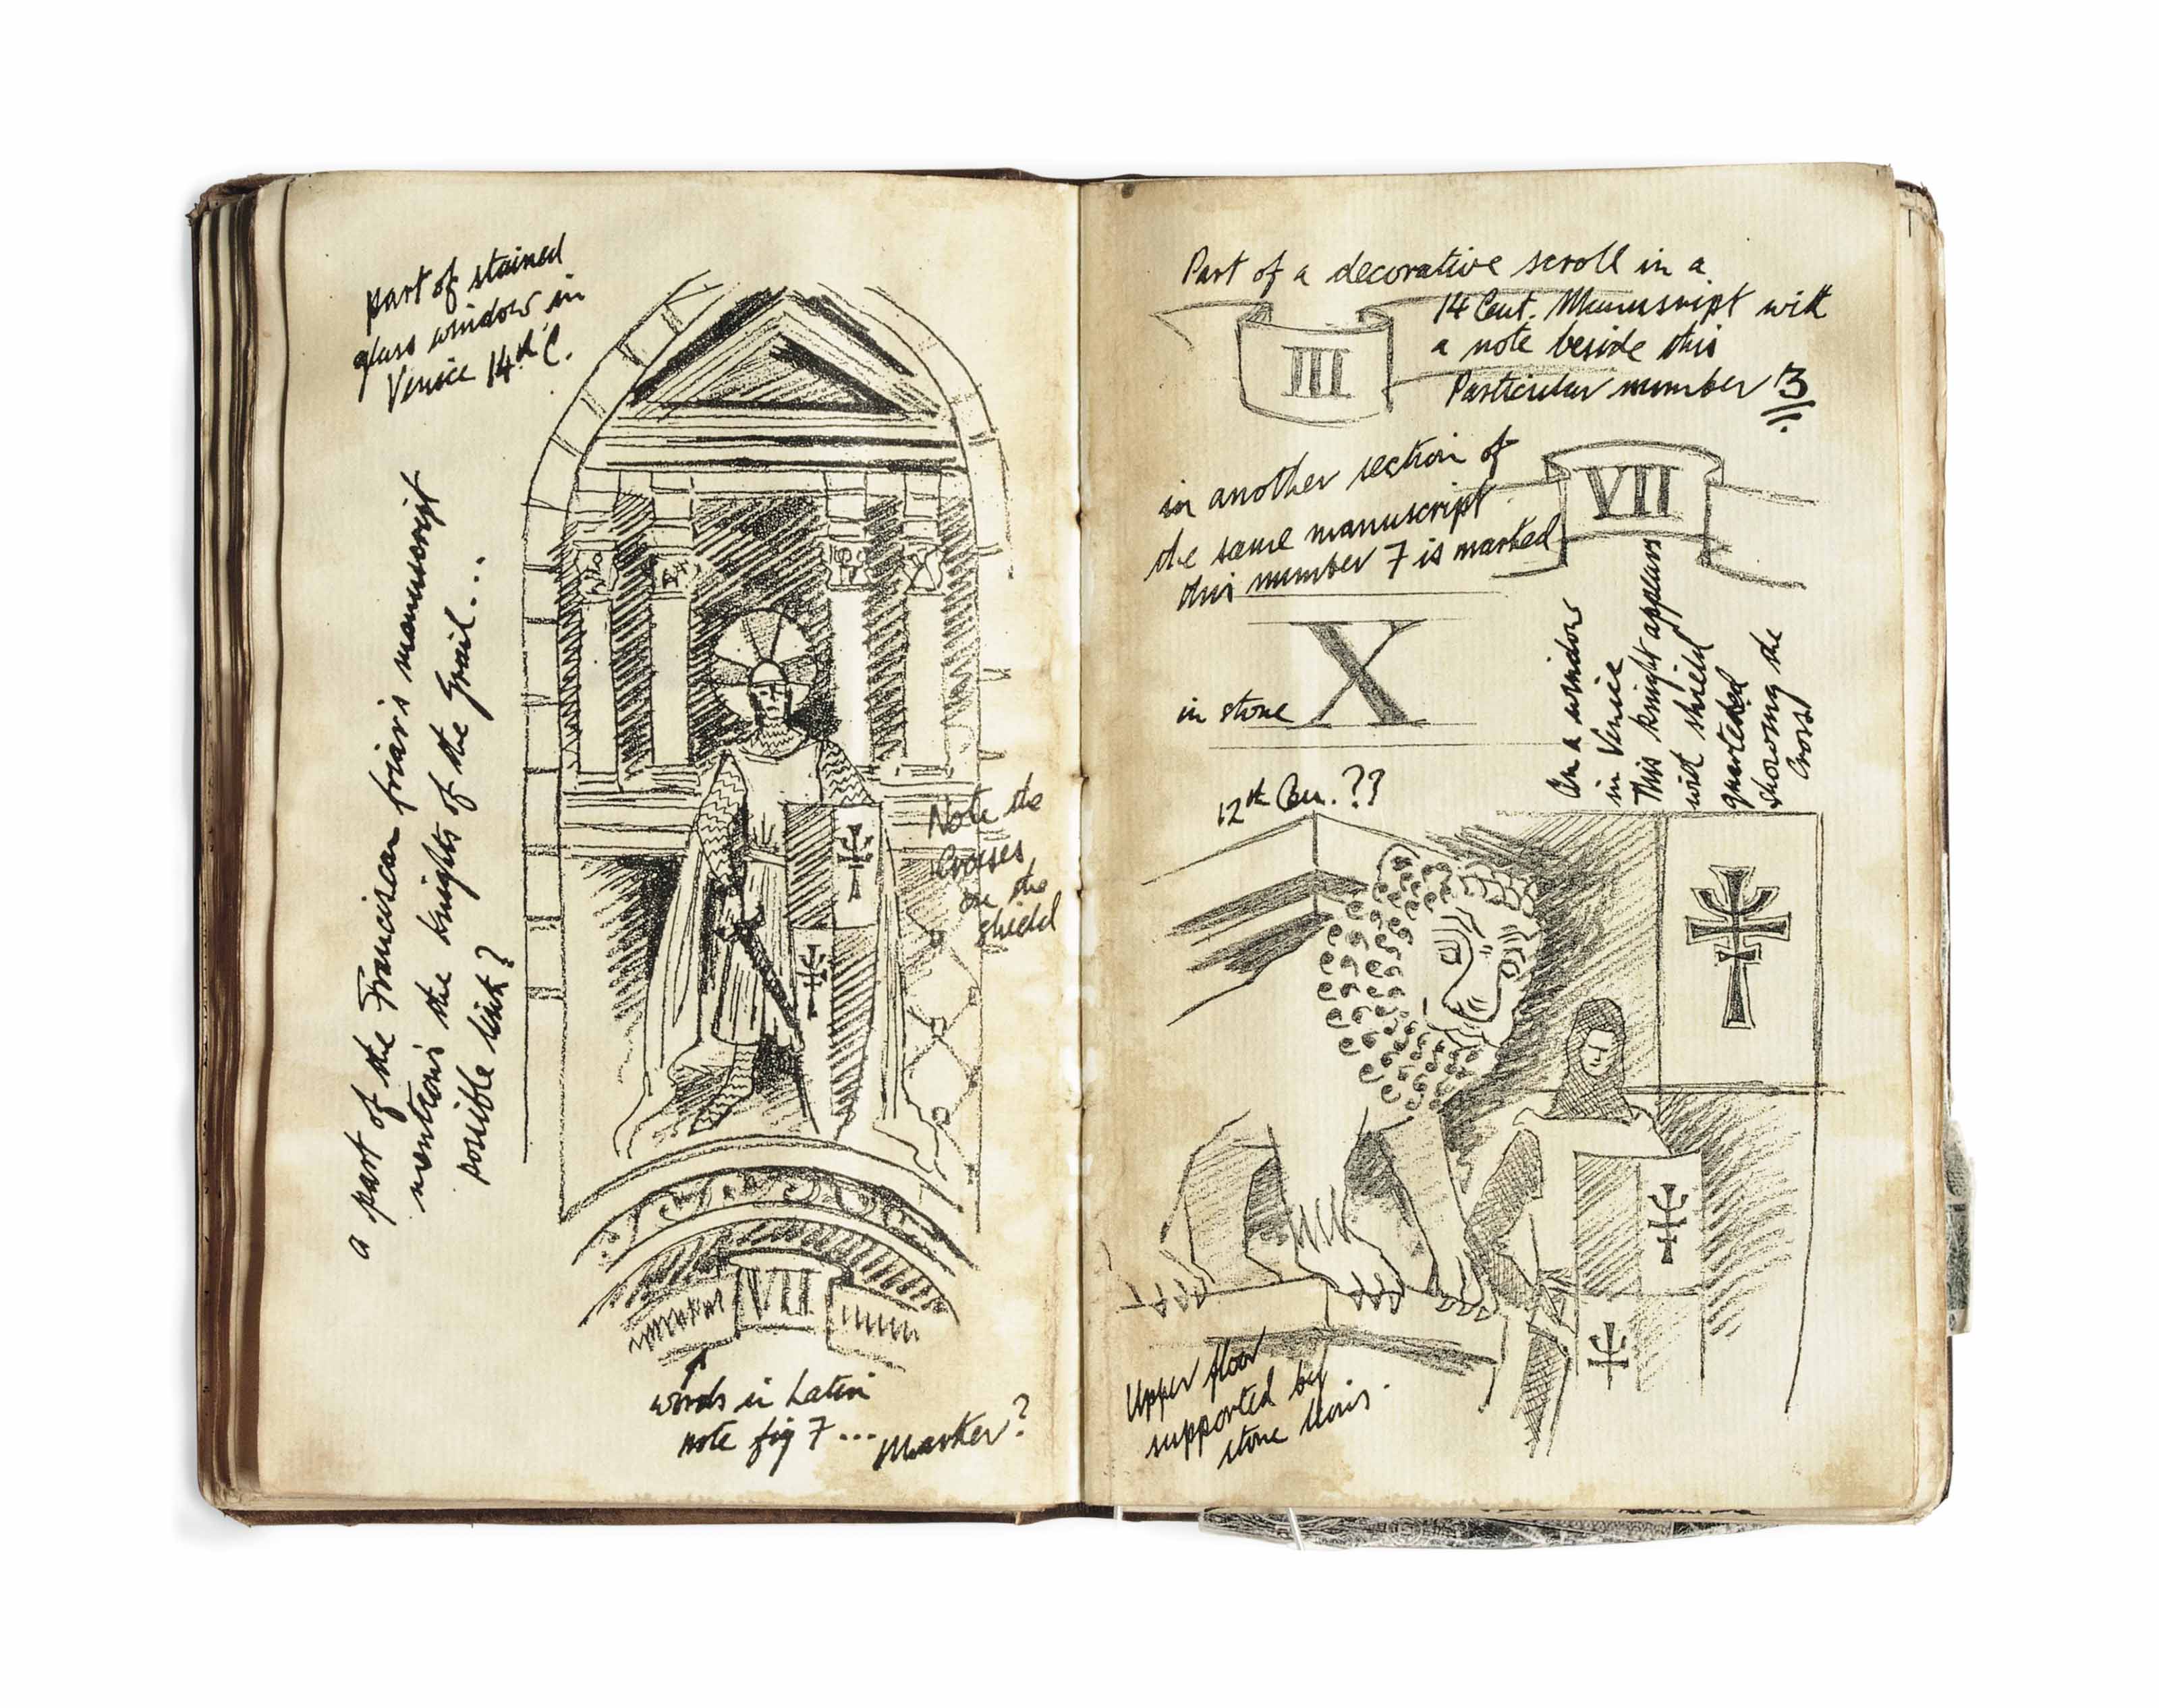 part of stained
glass window in
Venice 14th C.
a part of the Franciscan friar's manuscript
mentions the knights of the Grail...
possible link?
Note the
Crosses
on the
shield
VII
words in Latin
note fig 7... Marker?
Part of a decorative scroll in a
14 Cent. Manuscript with
a note beside this
Particular number 3
III
in another section of
the same manuscript
this number 7 is marked
VII
X
in stone
On a window
in Venice
This knight appears
with shield
quartered
showing the
Cross
12th Cen. ??
Upper floor
supported by
stone lions.